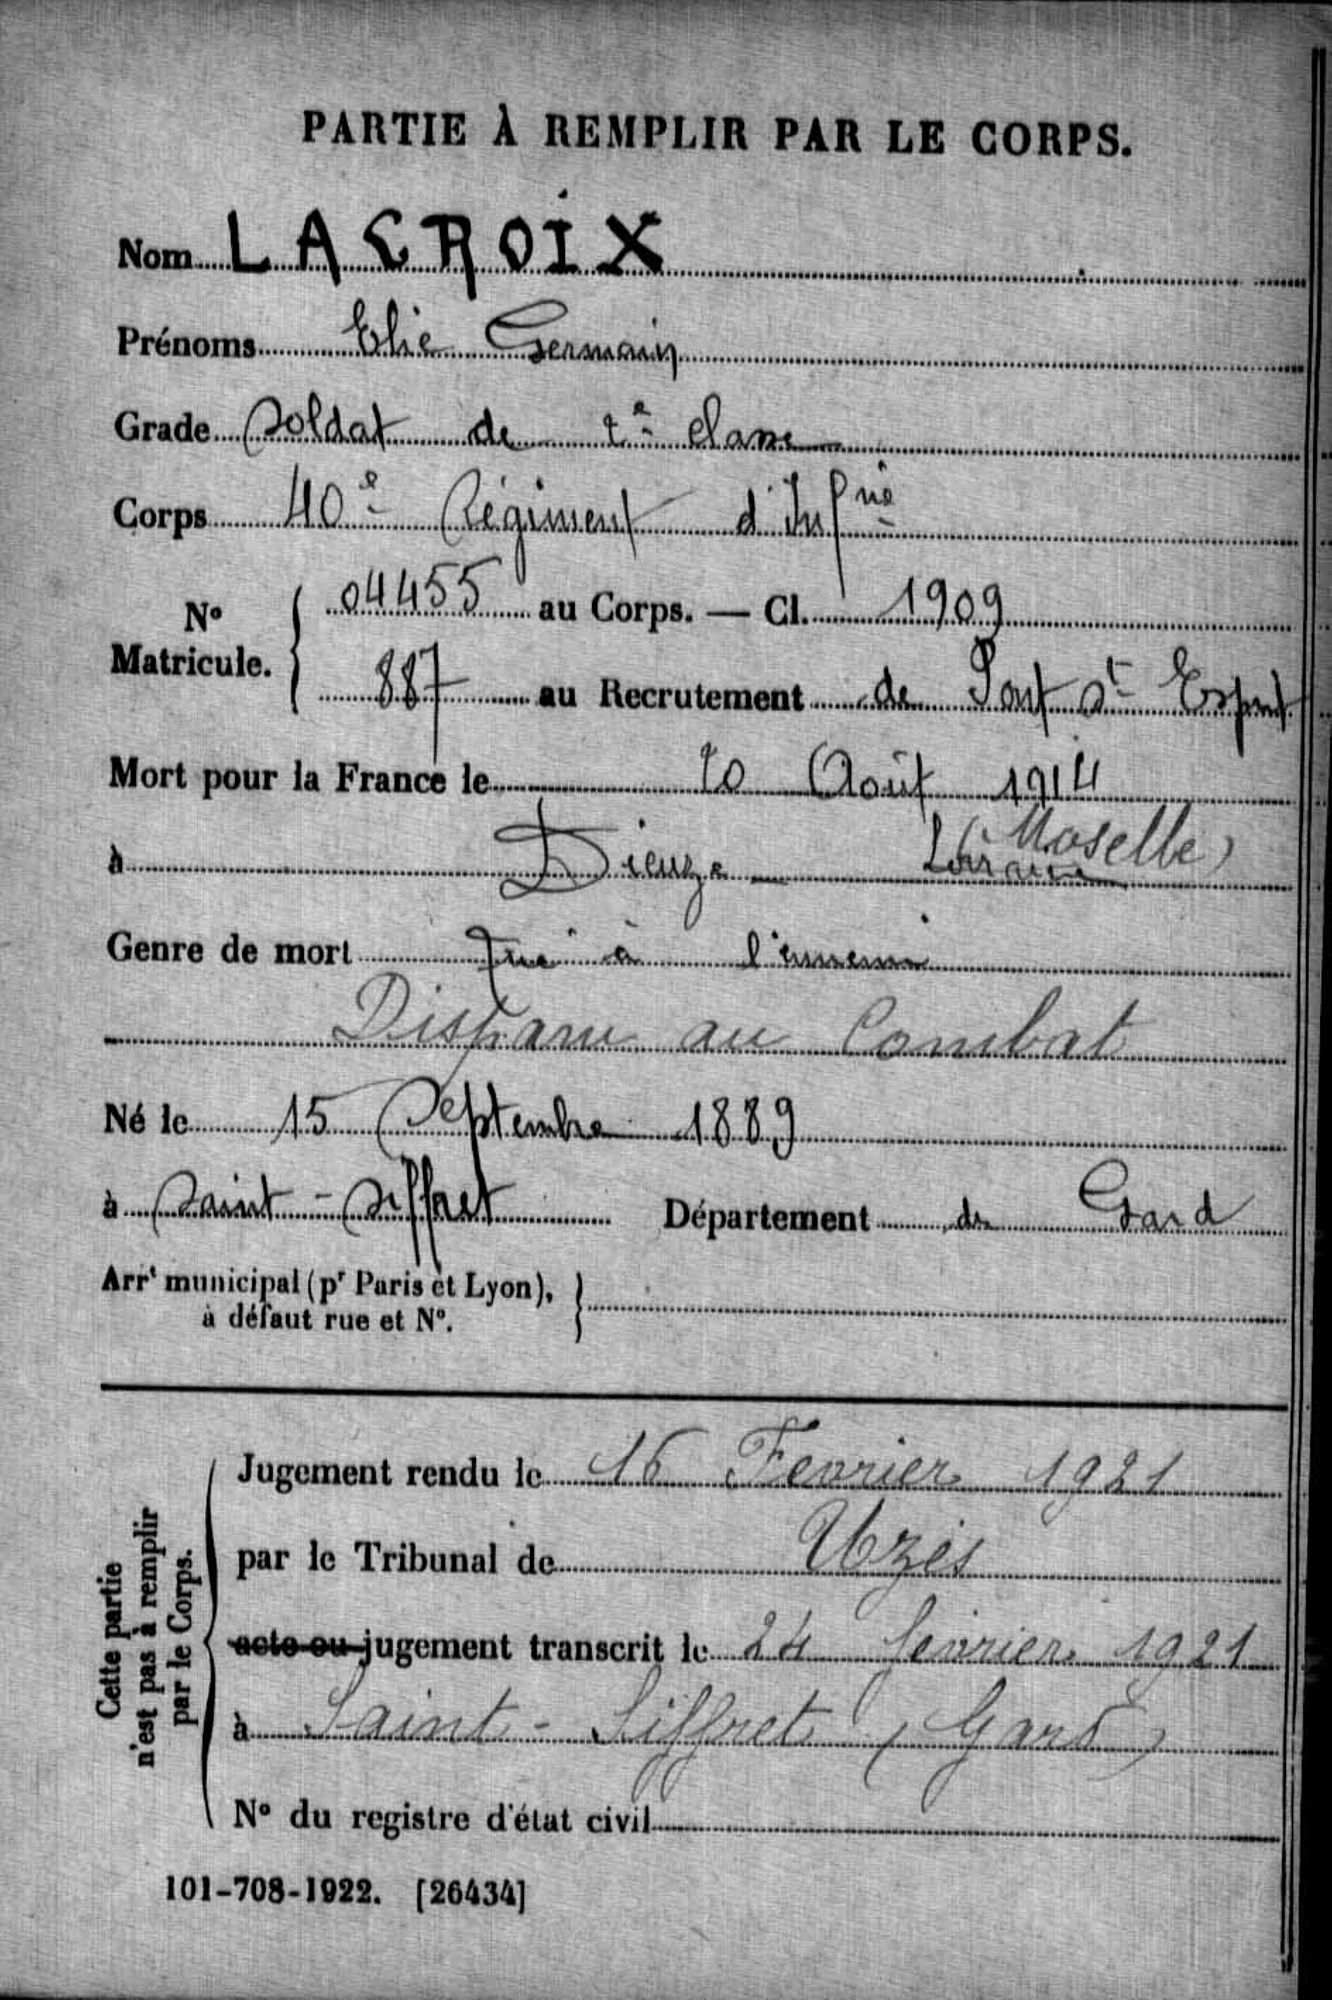 PARTIE À REMPLIR PAR LE CORPS.
Nom LACROIX
Prénoms Elie Germain
Grade Soldat de 2e classe
Corps 40e Régiment d'Infrie
No Matricule. 04455 au Corps. — Cl. 1909
887 au Recrutement de Pont St Esprit
Mort pour la France le 20 Août 1914
à Dieuze Lorraine (Moselle)
Genre de mort Tué à l'ennemi
Disparu au Combat
Né le 15 Septembre 1889
à Saint-Siffret Département de Gard
Arrt municipal (pr Paris et Lyon),
à défaut rue et No.
Cette partie
n'est pas à remplir
par le Corps.
Jugement rendu le 16 Fevrier 1921
par le Tribunal de Uzès
acte ou jugement transcrit le 24 février 1921
à Saint-Siffret (Gard)
No du registre d'état civil
101-708-1922. [26434]